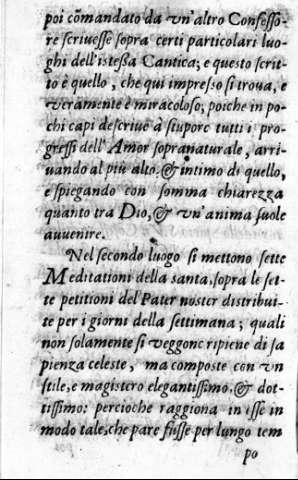 poi cõmandato da vn'altro Confesso-
re scriuesse sopra certi particolari luo-
ghi dell'istessa Cantica; e questo scrit-
to è quello, che qui impresso si troua, e
veramente è miracoloso; poiche in po-
chi capi descriue à stuporc tutti i pro-
gressi dell'Amor sopranaturale, arri-
uando al più alto, & intimo di quello,
e spiegando con somma chiarezza
quanto tra Dio, & vn'anima suole
auuenire.
Nel secondo luogo si mettono sette
Meditationi della santa, sopra le set-
te petitioni del Pater noster distribui-
te per i giorni della settimana; quali
non solamente si veggonc ripiene di sa
pienza celeste, ma composte con vn
stile, e magistero elegantissimo, & dot-
tissimo: percioche raggiona in esse in
modo tale, che pare fusse per lungo tem
po